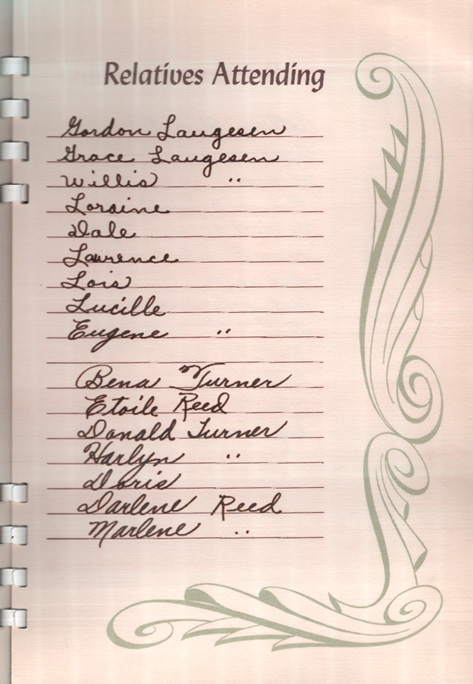 Relatives Attending
Gordon Laugesen
Grace Laugesen
Willis "
Loraine
Dale
Lawrence
Lois
Lucille
Eugene "
Bena Turner
Etoile Reed
Donald Turner
Harlyn "
Doris
Darlene Reed
Marlene "